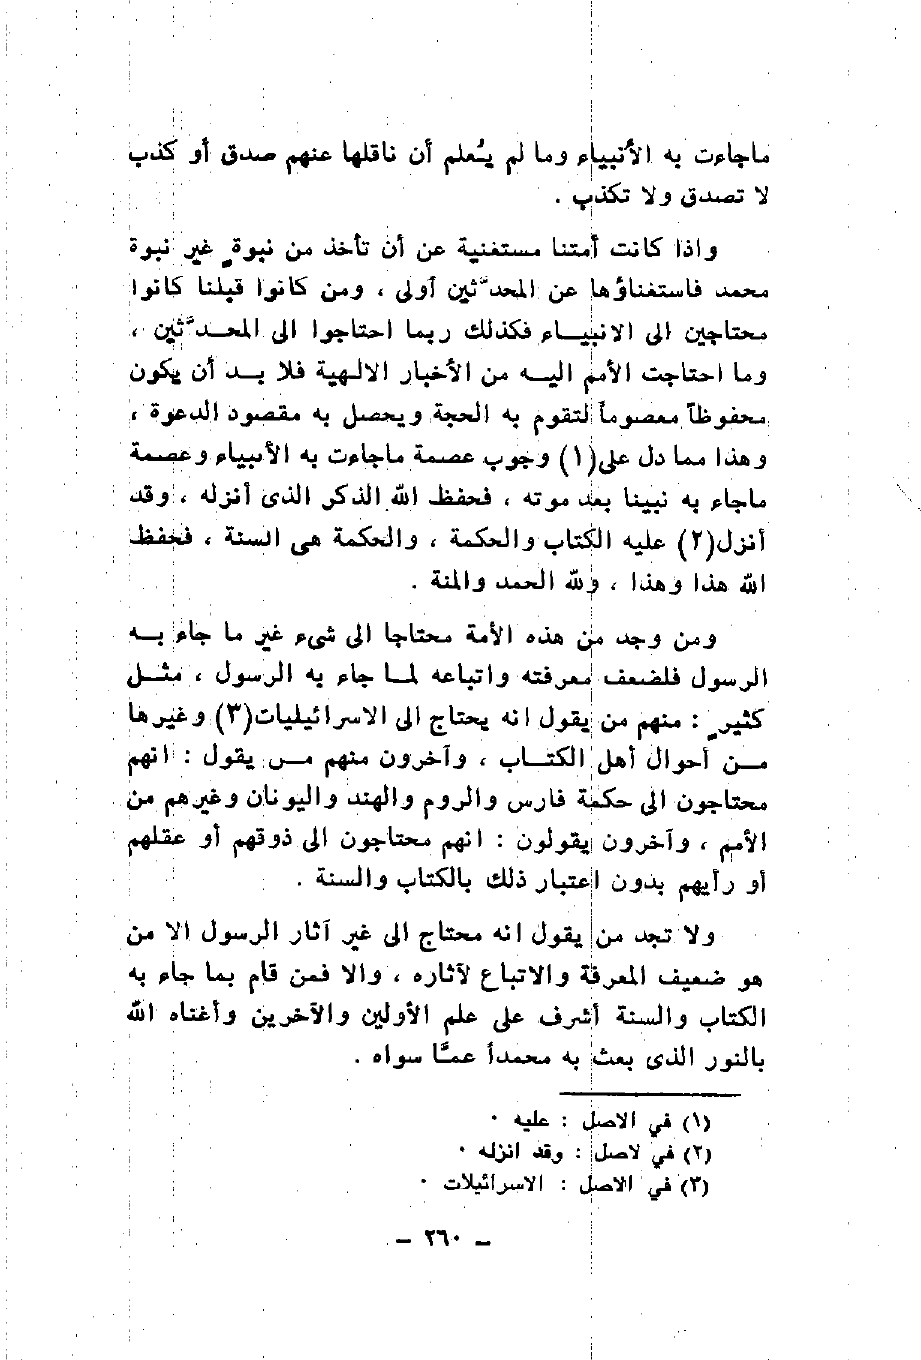 ماجاءت به الأنبياء وما لم يُعلم أن ناقلها عنهم صدق أو كذب
لا تصدق ولا تكذب .
واذا كانت أمتنا مستغنية عن أن تأخذ من نبوةٍ غير نبوة
محمد فاستغناؤها عن المحدَّثين أولى ، ومن كانوا قبلنا كانوا
محتاجين الى الانبياء فكذلك ربما احتاجوا الى المحدَّثين ،
وما احتاجت الأمم اليه من الأخبار الالهية فلا بد أن يكون
محفوظاً معصوماً لتقوم به الحجة ويحصل به مقصود الدعوة ،
وهذا مما دل على(١) وجوب عصمة ماجاءت به الأنبياء وعصمة
ماجاء به نبينا بعد موته ، فحفظ الله الذكر الذى أنزله ، وقد
أنزل(٢) عليه الكتاب والحكمة ، والحكمة هى السنة ، فحفظ
الله هذا وهذا ، ولله الحمد والمنة .
ومن وجد من هذه الأمة محتاجا الى شىء غير ما جاء به
الرسول فلضعف معرفته واتباعه لما جاء به الرسول ، مثل
كثيرٍ : منهم من يقول انه يحتاج الى الاسرائيليات(٣) وغيرها
من أحوال أهل الكتاب ، وآخرون منهم من يقول : انهم
محتاجون الى حكمة فارس والروم والهند واليونان وغيرهم من
الأمم ، وآخرون يقولون : انهم محتاجون الى ذوقهم أو عقلهم
أو رأيهم بدون اعتبار ذلك بالكتاب والسنة .
ولا تجد من يقول انه محتاج الى غير آثار الرسول الا من
هو ضعيف المعرفة والاتباع لآثاره ، والا فمن قام بما جاء به
الكتاب والسنة أشرف على علم الأولين والآخرين وأغناه الله
بالنور الذى بعث به محمداً عمَّا سواه .
(١) في الاصل : عليه ٠
(٢) في لاصل : وقد انزله ٠
(٣) في الاصل : الاسرائيلات ٠
ـ ٢٦٠ ـ